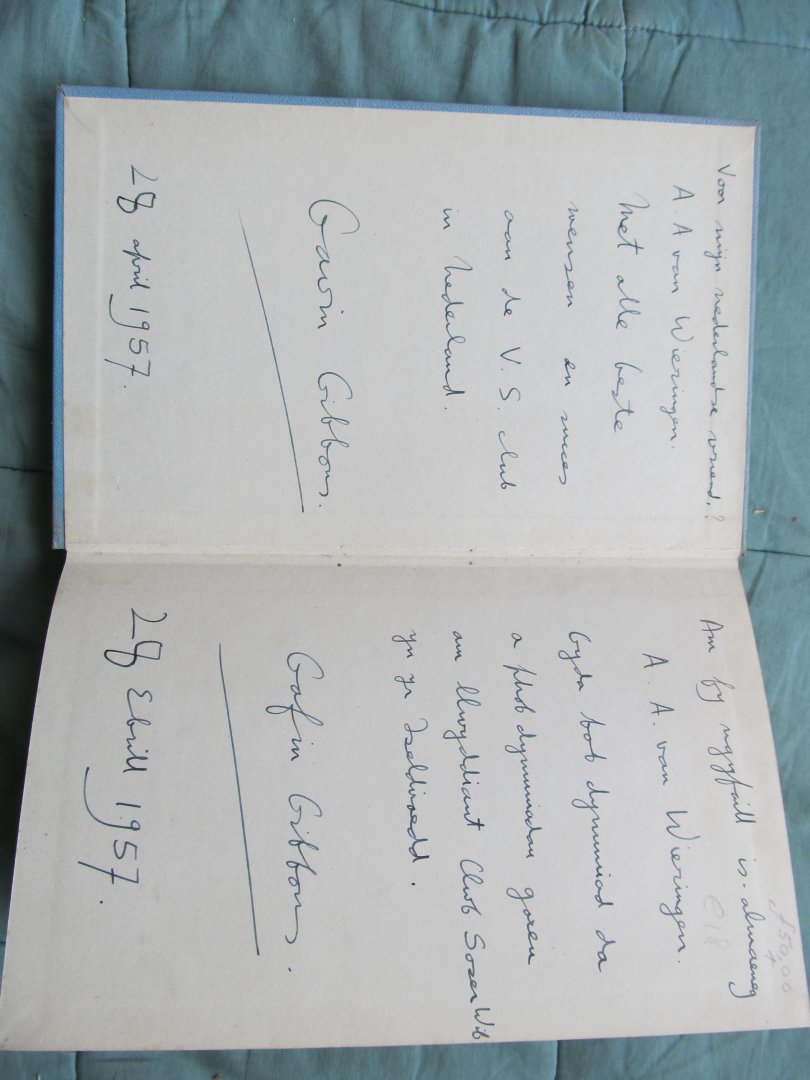 Voor mijn nederlandse vriend.?
A. A van Wieringen.
Met alle beste
wensen en succes
aan de V. S. club
in Nederland.
Gavin Gibbons.
28 april 1957.
£50,00
€18
Am fy nghyfaill is-almaeneg
A. A. van Wieringen.
Gyda bob dymuniad da
a phob dymuniadau goreu
am llwyddiant Clwb Soser Wib
yn yr Iseldiroedd.
Gafin Gibbons.
28 Ebrill 1957.